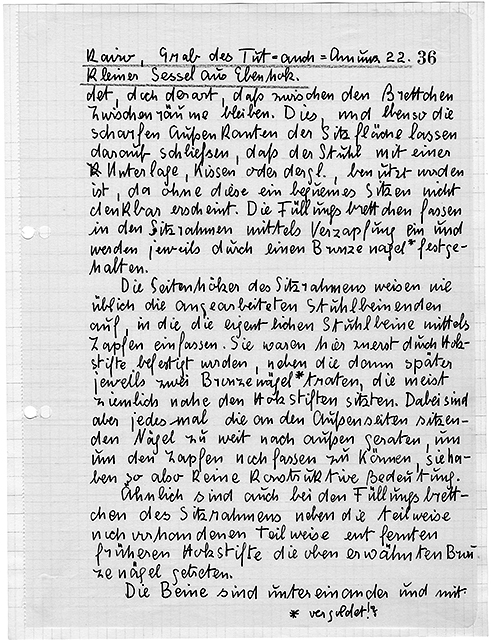 Kairo, Grab des Tut=anch=Amuns 22. 36
Kleiner Sessel aus Ebenholz.
det, doch derart, daß zwischen den Brettchen
Zwischenräume bleiben. Dies, und ebenso die
scharfen Außenkanten der Sitzfläche lassen
darauf schließen, daß der Stuhl mit einer
Unterlage, Kissen oder dergl., benützt worden
ist, da ohne diese ein bequemes Sitzen nicht
denkbar erscheint. Die Füllungsbrettchen fassen
in den Sitzrahmen mittels Verzapfung ein und
werden jeweils durch einen Bronzenagel* festge-
halten.
Die Seitenhölzer des Sitzrahmens weisen wie
üblich die angearbeiteten Stuhlbeinenden
auf, in die die eigentlichen Stuhlbeine mittels
Zapfen einfassen. Sie waren hier zuerst durch Holz-
stifte befestigt worden, neben die dann später
jeweils zwei Bronzenägel* traten, die meist
ziemlich nahe den Holzstiften sitzen. Dabei sind
aber jedesmal die an den Außenseiten sitzen-
den Nägel zu weit nach außen geraten, um
um den Zapfen noch fassen zu können, sie ha-
ben so also keine konstruktive Bedeutung.
Ähnlich sind auch bei den Füllungsbrett-
chen des Sitzrahmens neben die teilweise
noch vorhandenen teilweise entfernten
früheren Holzstifte die oben erwähnten Bron
zenägel getreten.
Die Beine sind untereinander und mit
* vergoldet!?